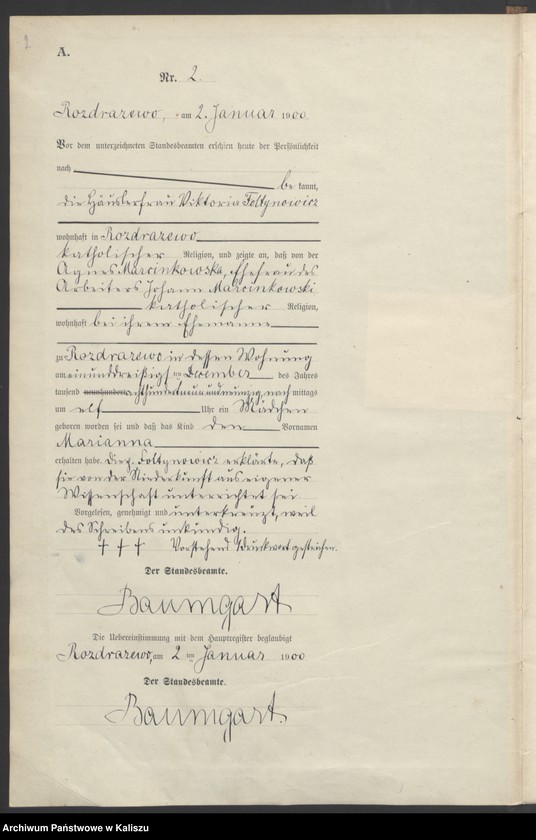 2
A.
Nr. 2.
Rozdrazewo, am 2. Januar 1900
Vor dem unterzeichneten Standesbeamten erschien heute der Persönlichkeit
nach
be kannt,
die Häuslerfrau Viktoria Foltynowicz
wohnhaft in Rozdrazewo
katholischer Religion, und zeigte an, daß von der
Agnes Marcinkowska, Ehefrau des
Arbeiters Johann Marcinkowski
katholischer Religion,
wohnhaft bei ihrem Ehemanne
zu Rozdrazewo in dessen Wohnung
am einunddreißigsten December des Jahres
tausend neunhundert achthundertneunundneunzig nach mittags
um elf Uhr ein Mädchen
geboren worden sei und daß das Kind den Vornamen
Marianna
erhalten habe. Die p. Foltynowicz erklärte, daß
sie von der Niederkunft aus eigener
Wissenschaft unterrichtet sei
Vorgelesen, genehmigt und unterkreuzt, weil
des Schreibens unkundig.
+ + + Vorstehend 1 Druckwort gestrichen.
Der Standesbeamte.
Baumgart
Die Uebereinstimmung mit dem Hauptregister beglaubigt
Rozdrazewo, am 2 ten Januar 1900
Der Standesbeamte.
Baumgart.
Archiwum Państwowe w Kaliszu